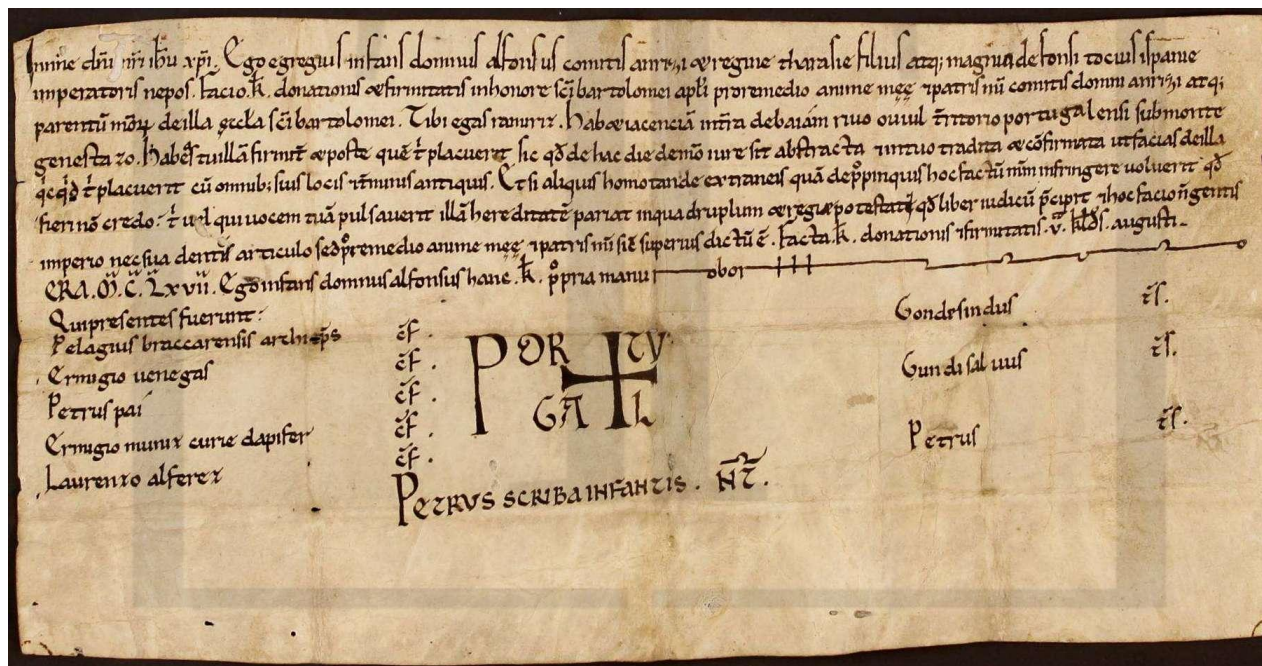 In nn̄e dn̄i nr̄i ih̄u xp̄i. Ego egregius infans domnus alfonsus comitis anrrici & regine tharasie filius atq; magni adefonsi tocius ispanie
imperatoris nepos. facio. k̄. donationis & firmitatis in honore sc̄i bartolomei apl̄i pro remedio anime meę ⁊ patris mī comitis domni anrrici atq;
parentū mōꝝ de illa ęccl̄a sc̄i bartolomei. Tibi egas ramiriz. Hab& iacenciā in t̄ra de baiam rivo ovil t̄ritorio portugalensi sub monte
genestazo. Habeas tu illā firmit̄ & post te quē t̄ placuerit sic qd̄ de hac die de mō iure sit abstracta ⁊ in tuo tradita & cōfirmata ut facias de illa
qcqd̄ t̄ placuerit cū omnib; suis locis ⁊ t̄minis antiquis. Et si aliquis homo tan de extraneis quā de pp̄inquis hoc factū mm̄ infringere voluerit qd̄
fieri nō credo: t̄ ul̄ qui vocem tuā pulsaverit illā hereditatē pariat in quadruplum & regiæ potestati qd̄ liber iudicū p̄cipit ⁊ hoc facio n̄ gentis
imperio nec suadentis articulo sed p̄ remedio anime meę ⁊ patris mī sic̄ superius dictū ē. facta. k̄. donationis ⁊ firmitatis. v̄. kl̄ds. augusti.
ERA. M̄. C̄. L̄xvii. Ego infans domnus alfonsus hanc. k̄. ppria manu roboro
Qui presentes fuerunt:
Pelagius braccarensis archiep̄s cf̄.
Ermigio venegas cf̄.
Petrus pai cf̄.
Ermigio muniz curie dapifer cf̄.
Laurenzo alferez cf̄.
PORTV
GAL
Gondesindus ts̄.
Gundisalvus ts̄.
Petrus ts̄.
PETRVS SCRIBA INFANTIS. N̄T̄.